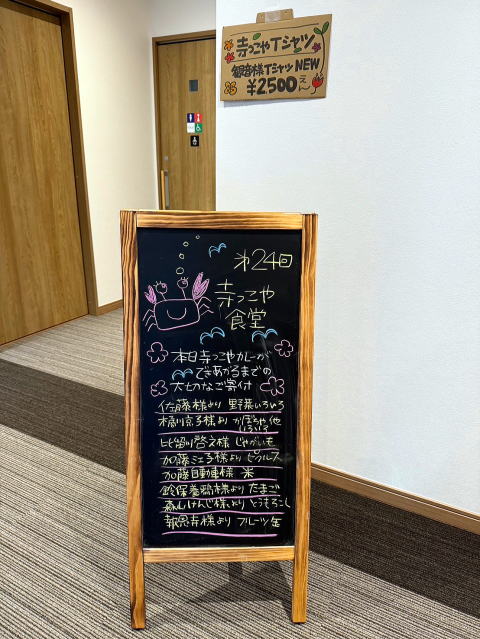 寺っこやTシャツ
観音様Tシャツ NEW
¥2,500えん
第24回
寺っこや
食堂
本日寺っこやカレーが
できあがるまでの
大切なご寄付
佐藤様より 野菜いろいろ
橘川京子様より かぼちゃ他
いろいろ
比留川啓文様 じゃがいも
加藤ミエ子様より ピクルス
加藤自動車様 米
鈴保養鶏様より たまご
森山けんじ様より とうもろこし
報恩寺様より フルーツ缶